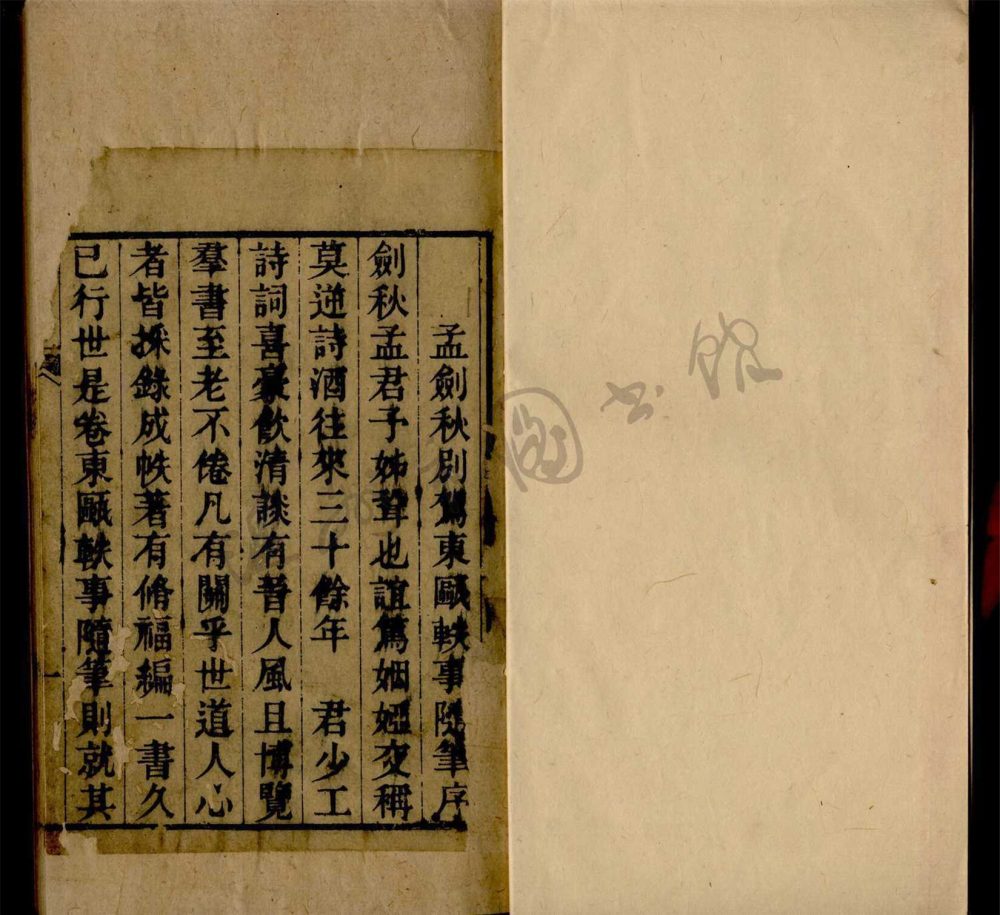 孟劍秋別駕東甌軼事隨筆序
劍秋孟君予姊壻也誼篤姻婭交稱
莫逆詩酒往來三十餘年 君少工
詩詞喜豪飲清談有晉人風且博覽
羣書至老不倦凡有關乎世道人心
者皆採錄成帙著有脩福編一書久
已行世是卷東甌軼事隨筆則就其
一